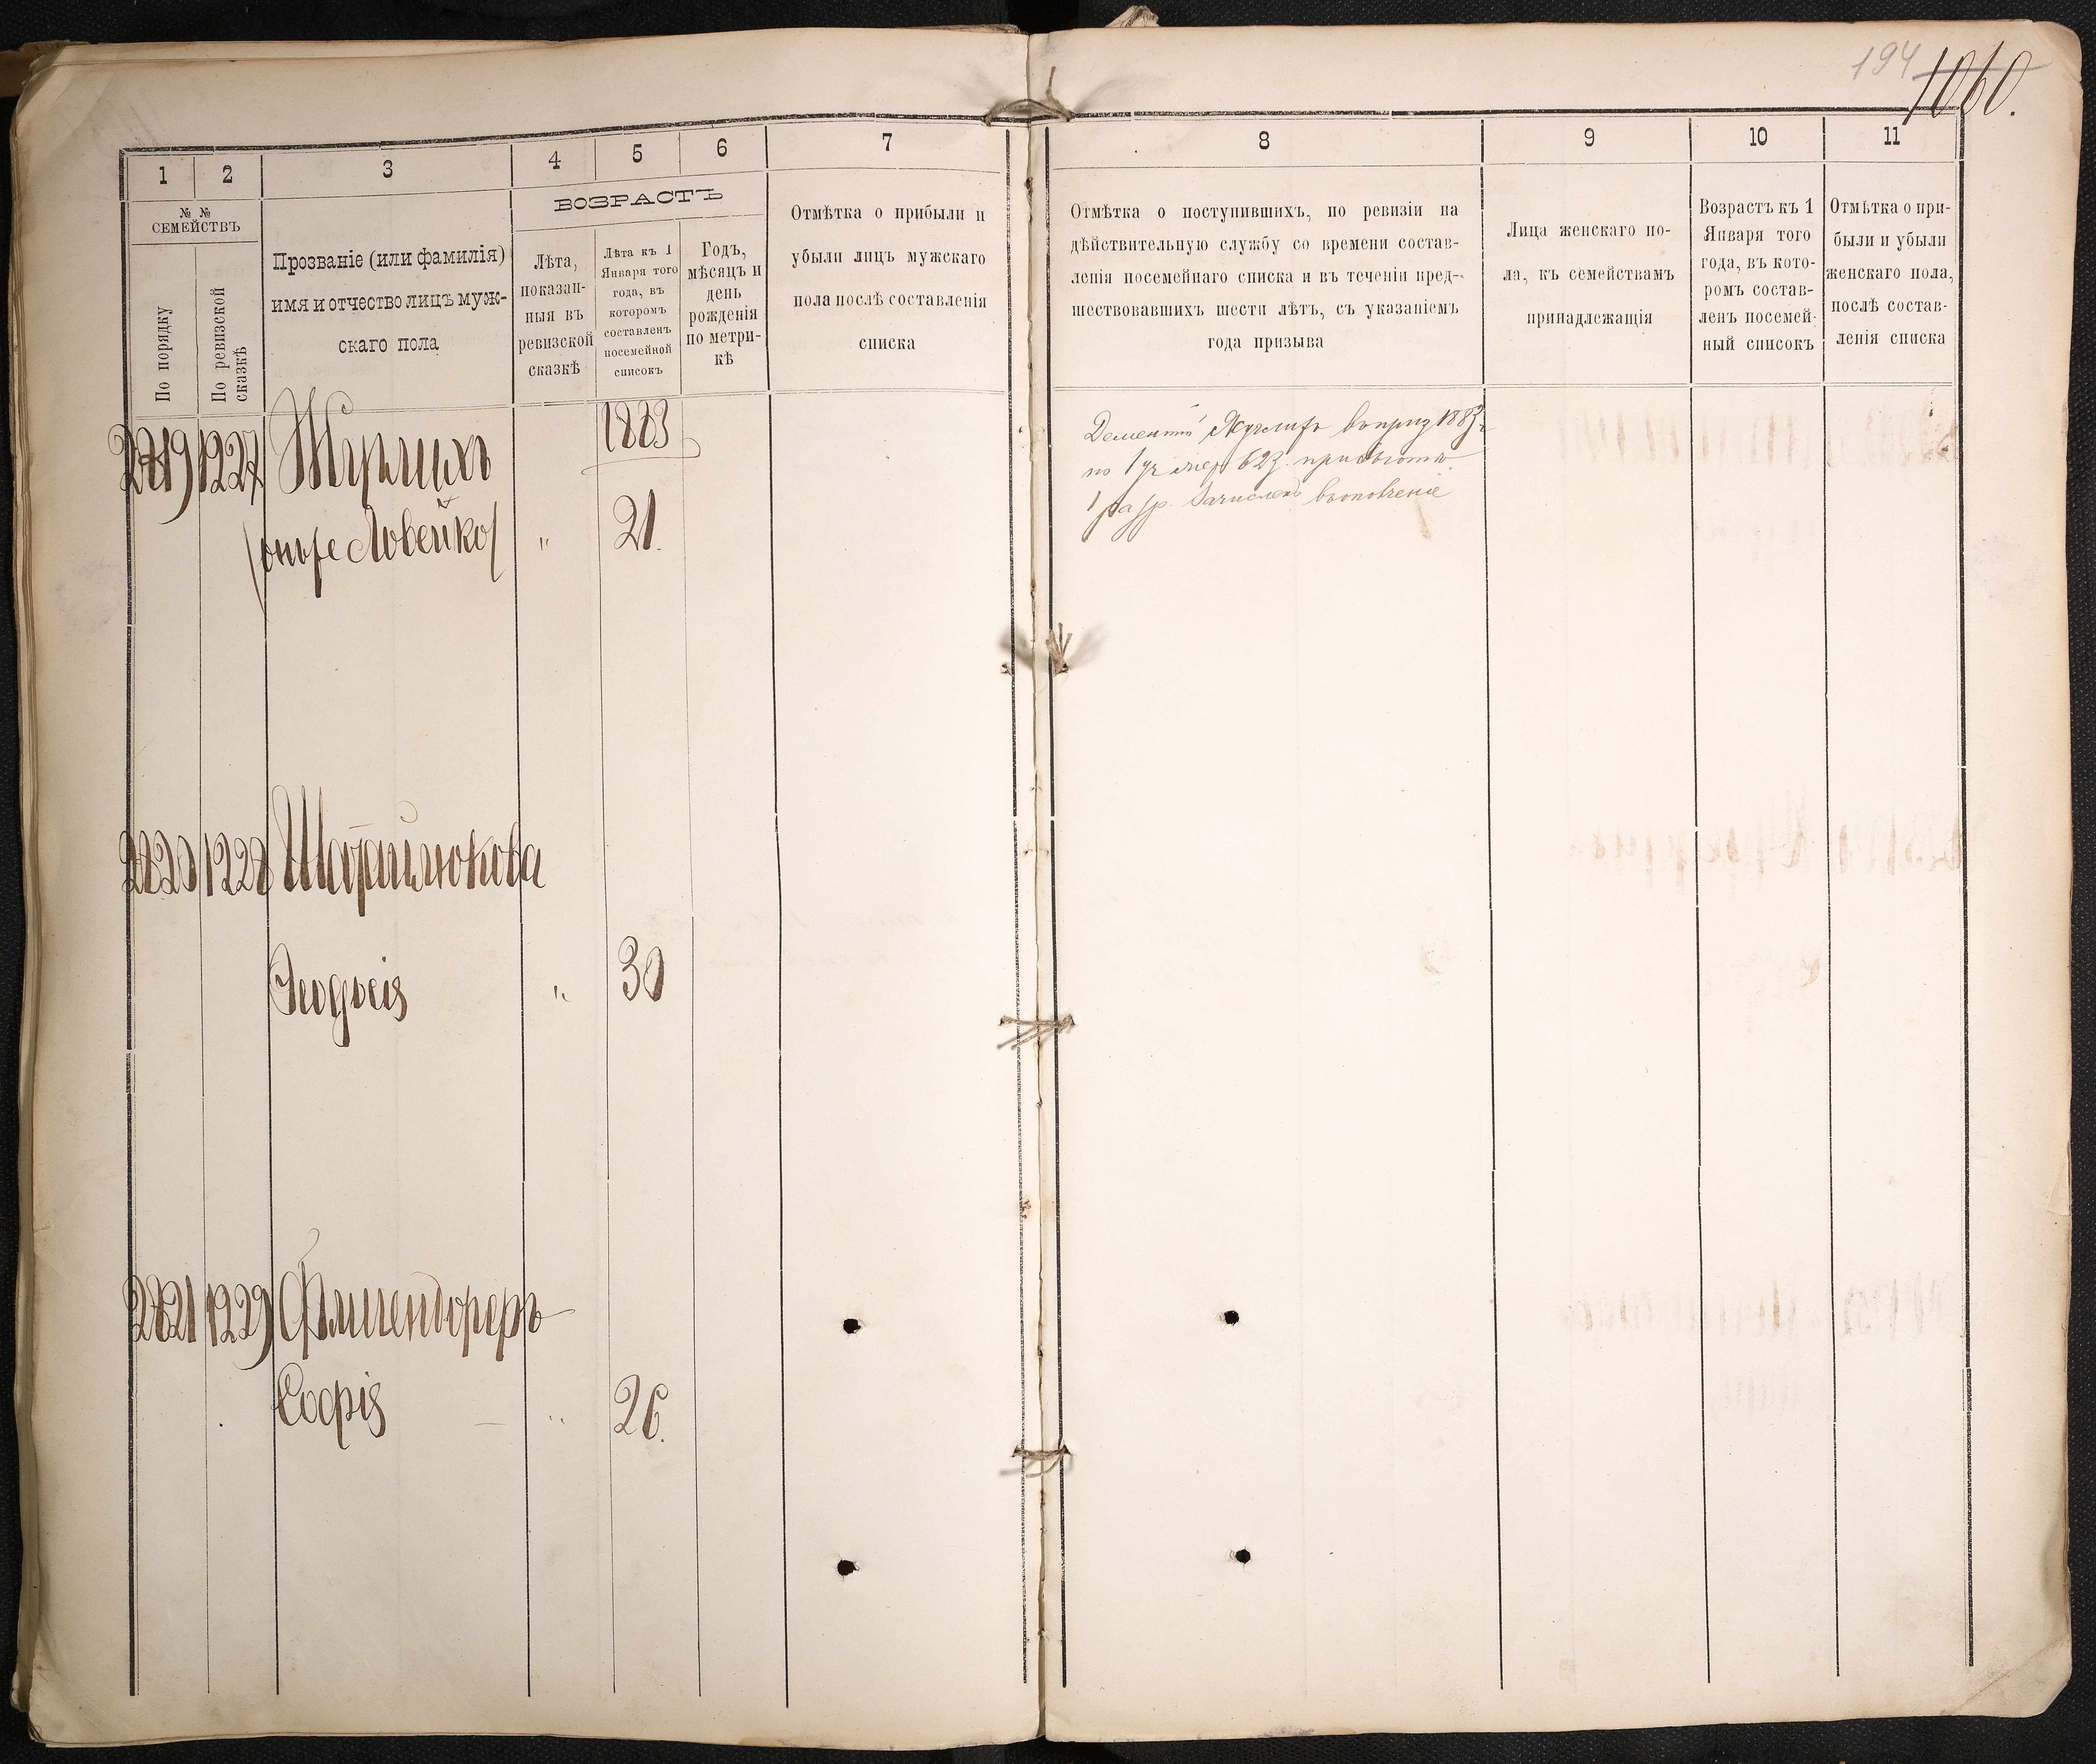 194 1060.
1 2 3 4 5 6 7 8 9 10 11
№ №
СЕМЕЙСТВЪ
По порядку
По ревизской
сказкѣ
Прозваніе (или фамилія)
имя и отчество лицъ муж-
скаго пола
ВОЗРАСТЪ
Лѣта,
показан-
ныя въ
ревизской
сказкѣ
Лѣта къ 1
Января того
года, въ
которомъ
составленъ
посемейной
списокъ
Годъ,
мѣсяцъ и
день
рожденія
по метри-
кѣ
Отмѣтка о прибыли и
убыли лицъ мужскаго
пола послѣ составленія
списка
Отмѣтка о поступившихъ, по ревизіи на
дѣйствительную службу со времени состав-
ленія посемейнаго списка и въ теченіи пред-
шествовавшихъ шести лѣтъ, съ указаніемъ
года призыва
Лица женскаго по-
ла, къ семействамъ
принадлежащія
Возрастъ къ 1
Января того
года, въ кото-
ромъ состав-
ленъ посемей-
ный списокъ
Отмѣтка о при-
были и убыли
женскаго пола,
послѣ состав-
ленія списка
1227 1883
онъ же Ловейко " 21.
Дементій въ 1883
по 1 уч 623
1 разр. Зачисленъ въ ополченіе
1228
Феодосія " 30
1229
Софія " 26.